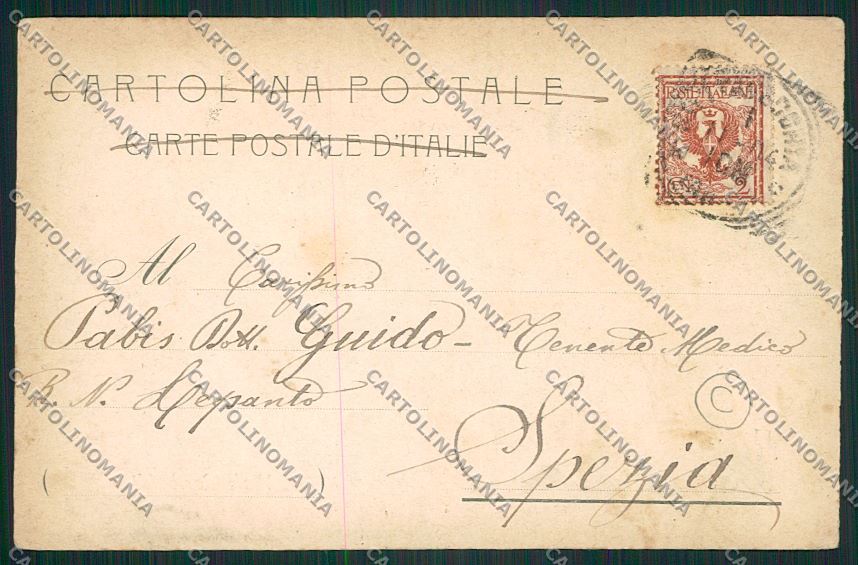 CARTOLINA POSTALE
CARTE POSTALE D'ITALIE
POSTE·ITALIANE
2
Al Carissimo
Pabis Dott. Guido - Tenente Medico
R. N. Lepanto
Spezia
C
( )
CARTOLINOMANIA